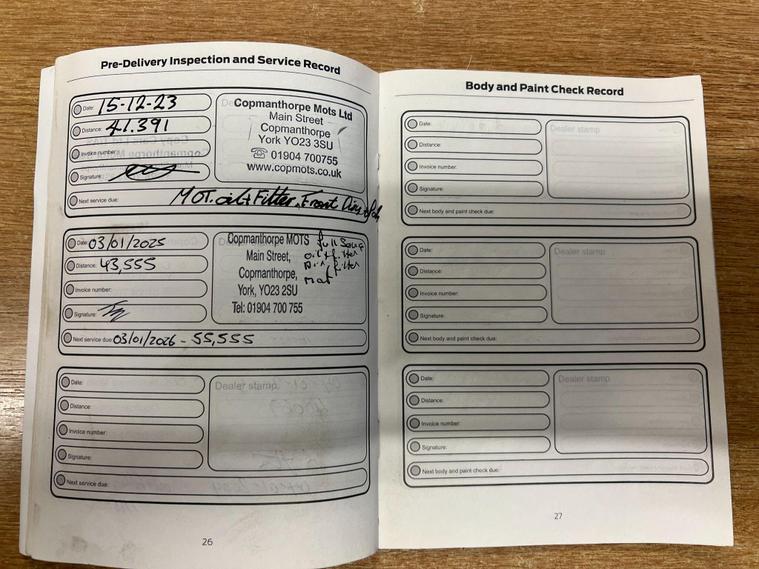 Pre-Delivery Inspection and Service Record
Date: 15-12-23
Distance: 41.391
Invoice number:
Signature:
Copmanthorpe Mots Ltd
Main Street
Copmanthorpe
York YO23 3SU
☎ 01904 700755
www.copmots.co.uk
Next service due: MOT. oil+Filter. Front Discs
Date: 03/01/2025
Distance: 43,555
Invoice number:
Signature:
Copmanthorpe MOTS
Main Street,
Copmanthorpe,
York, YO23 2SU
Tel: 01904 700 755
full
oil+filter
Air filter
Mot
Next service due: 03/01/2026 - 55,555
Date:
Distance:
Invoice number:
Signature:
Dealer stamp
Next service due:
26
Body and Paint Check Record
Date:
Distance:
Invoice number:
Signature:
Dealer stamp
Next body and paint check due:
Date:
Distance:
Invoice number:
Signature:
Dealer stamp
Next body and paint check due:
Date:
Distance:
Invoice number:
Signature:
Dealer stamp
Next body and paint check due:
27